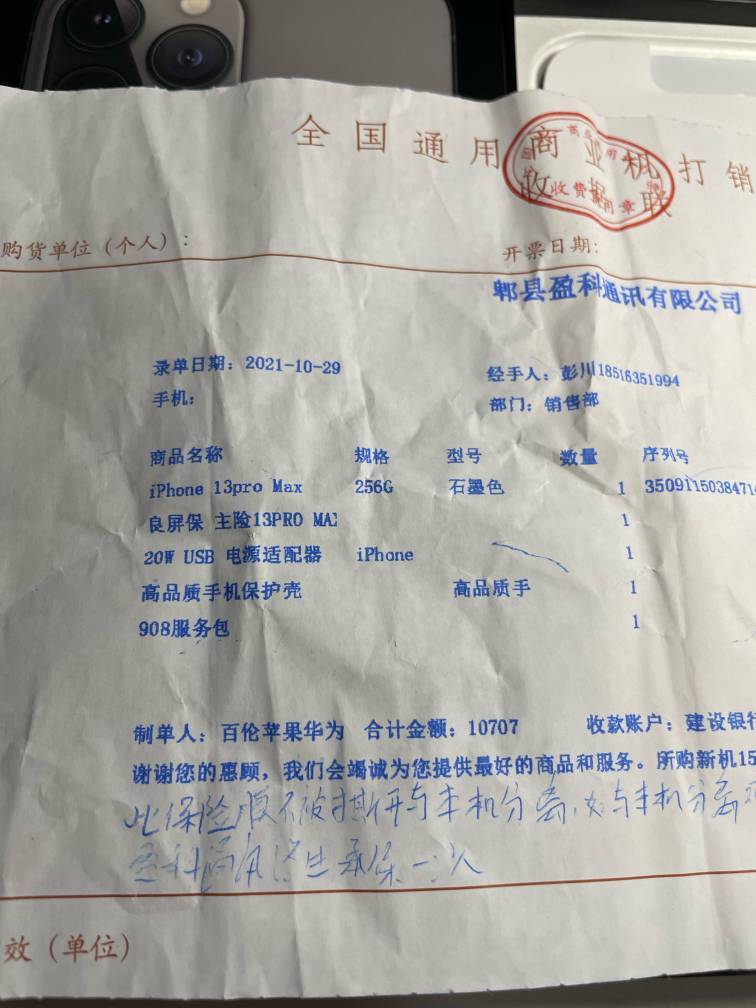 全国通用商业机打销
收据联
收费专用章
购货单位（个人）：
开票日期：
郫县盈科通讯有限公司
录单日期：2021-10-29
经手人：彭川18516351994
手机：
部门：销售部
商品名称 规格 型号 数量 序列号
iPhone 13pro Max 256G 石墨色 1 350911503847
良屏保 主险13PRO MAX 1
20W USB 电源适配器 iPhone 1
高品质手机保护壳 高品质手 1
908服务包 1
制单人：百伦苹果华为 合计金额：10707 收款账户：建设银行
谢谢您的惠顾，我们会竭诚为您提供最好的商品和服务。所购新机15
此保险膜不被撕开与本机分离，如与本机分离
盈科
一次
效（单位）